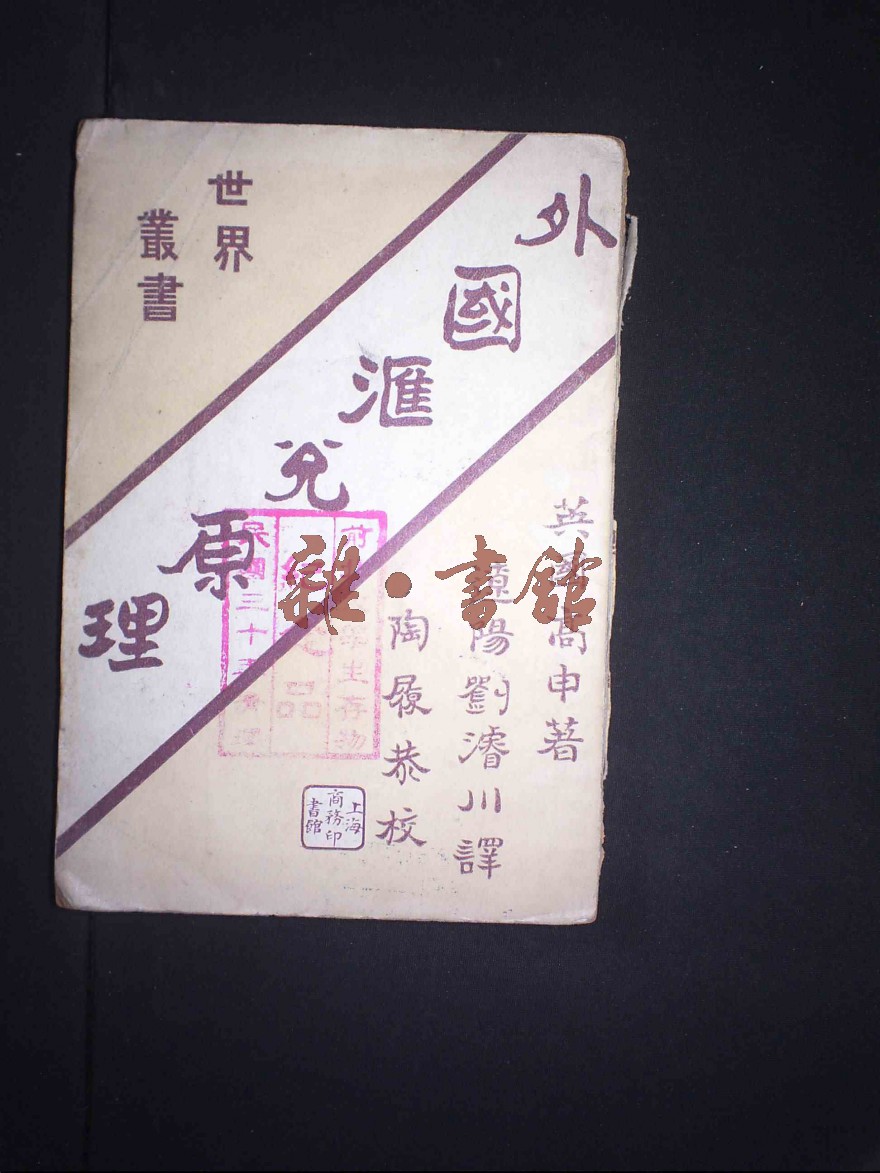 世界
叢書
外國滙兌原理
英國高申著
遼陽劉濬川譯
陶履恭校
上海
商務印
書館
雜·書館
生存物
品
民國三十